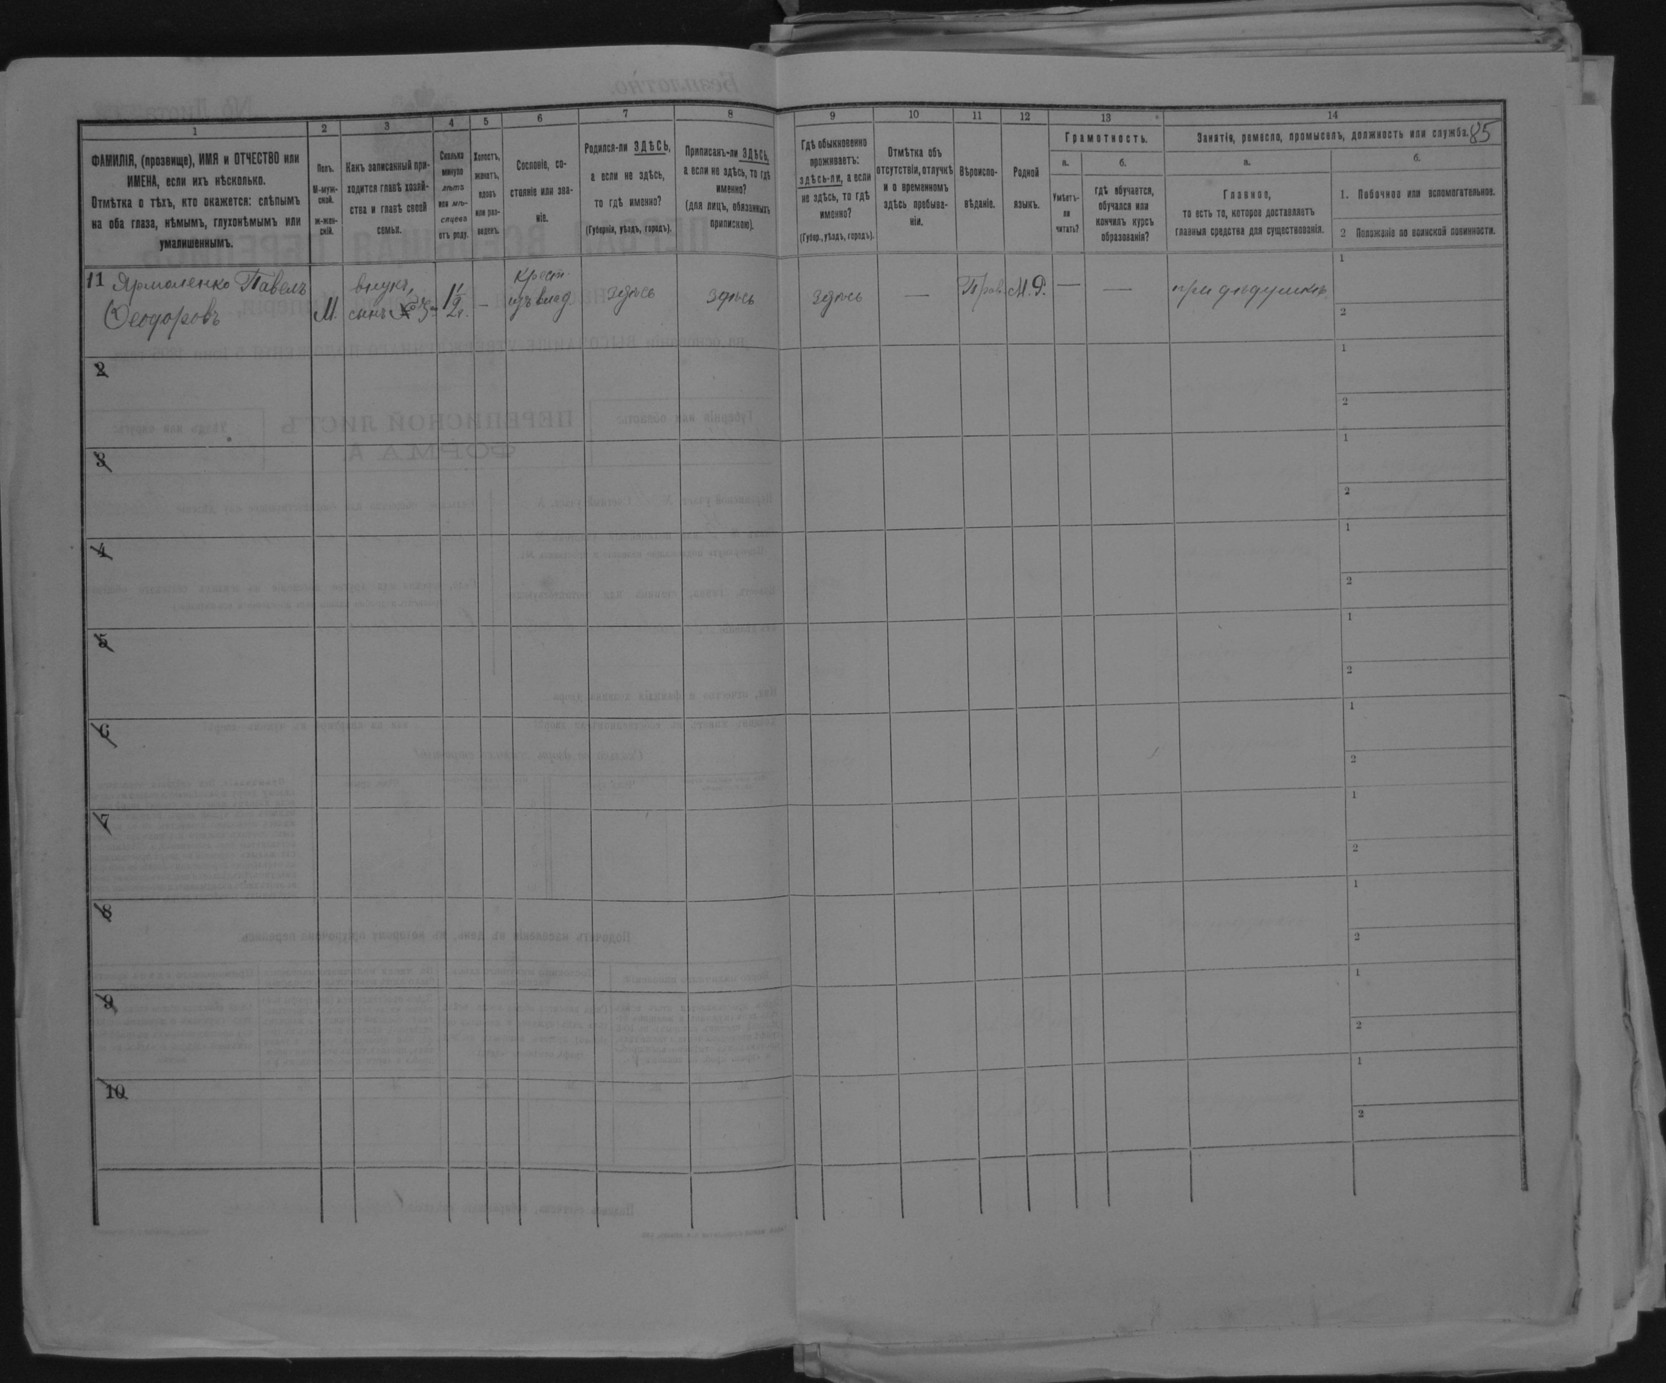 1
2
3
4
5
6
7
8
9
10
11
12
13
14
85
ФАМИЛІЯ, (прозвище), ИМЯ и ОТЧЕСТВО или
ИМЕНА, если ихъ нѣсколько.
Отмѣтка о тѣхъ, кто окажется: слѣпымъ
на оба глаза, нѣмымъ, глухонѣмымъ или
умалишеннымъ.
Полъ.
М-муж-
ской.
Ж-жен-
скій.
Какъ записанный при-
ходится главѣ хозяй-
ства и главѣ своей
семьи.
Сколько
минуло
лѣтъ
или мѣ-
сяцевъ
отъ роду.
Холостъ,
женатъ,
вдовъ
или раз-
веденъ.
Сословіе, со-
стояніе или зва-
ніе.
Родился-ли ЗДѢСЬ,
а если не здѣсь,
то гдѣ именно?
(Губернія, уѣздъ, городъ).
Приписанъ-ли ЗДѢСЬ,
а если не здѣсь, то гдѣ
именно?
(для лицъ, обязанныхъ
припискою).
Гдѣ обыкновенно
проживаетъ:
здѣсь-ли, а если
не здѣсь, то гдѣ
именно?
(Губер., уѣздъ, городъ).
Отмѣтка объ
отсутствіи, отлучкѣ
и о временномъ
здѣсь пребыва-
ніи.
Вѣроиспо-
вѣданіе.
Родной
языкъ.
Грамотность.
а.
Умѣетъ-
ли
читать?
б.
гдѣ обучается,
обучался или
кончилъ курсъ
образованія?
Занятія, ремесло, промыселъ, должность или служба.
а.
Главное,
то есть то, которое доставляетъ
главныя средства для существованія.
б.
1. Побочное или вспомогательное.
2 Положеніе по воинской повинности.
11 Ярмоленко Павелъ
Ѳеодоровъ
М.
внукъ,
сынъ
1½
г.
—
крест.
изъ влад.
здѣсь
здѣсь
здѣсь
—
Прав.
М. Р.
—
—
при дѣдушкѣ
1
2
2
1
2
3
1
2
4
1
2
5
1
2
6
1
2
7
1
2
8
1
2
9
1
2
10
1
2